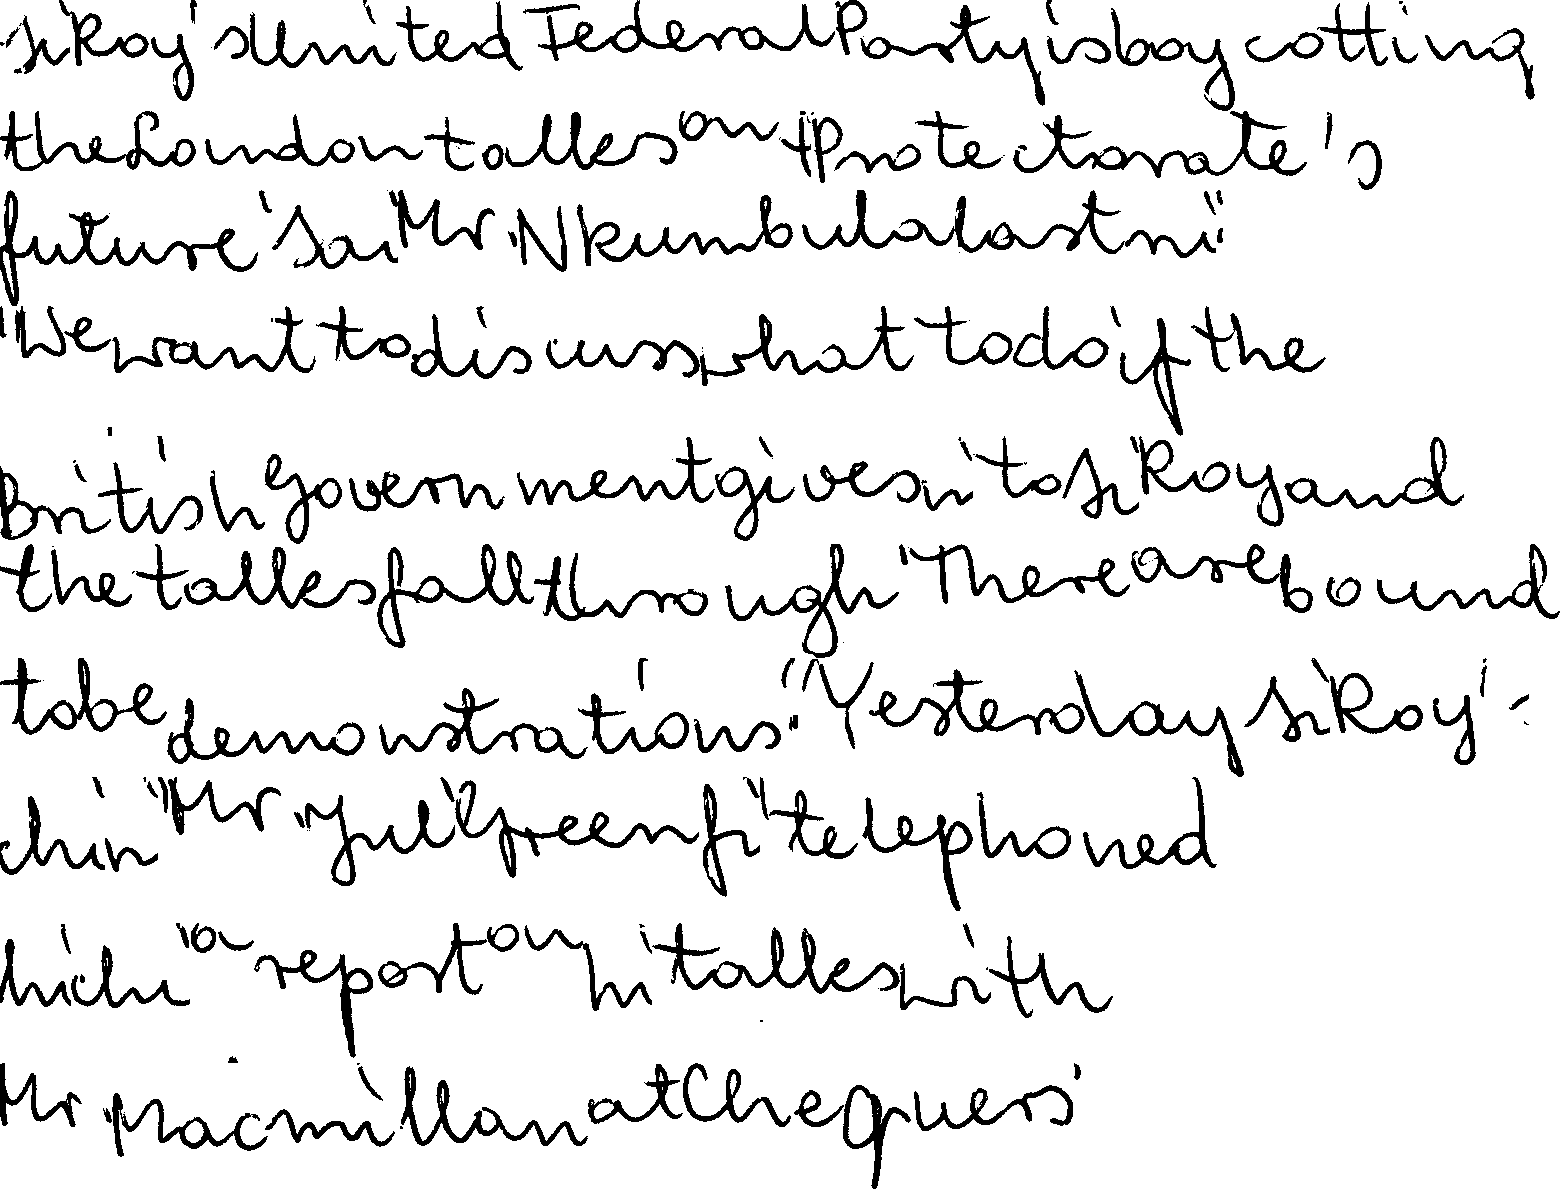 Si Roy's United Federal Party is boycotting
the London talks on t Protectorate's
future Sai Mr. Nkumbula last ni
"We want to discuss what to do if the
British Government gives in to Si Roy and
the talks fall through There are bound
to be demonstrations." Yesterday Si Roy'
Mr. Juli Greenfi telephoned
a report on hi talks with
Mr Macmillan at Chequers